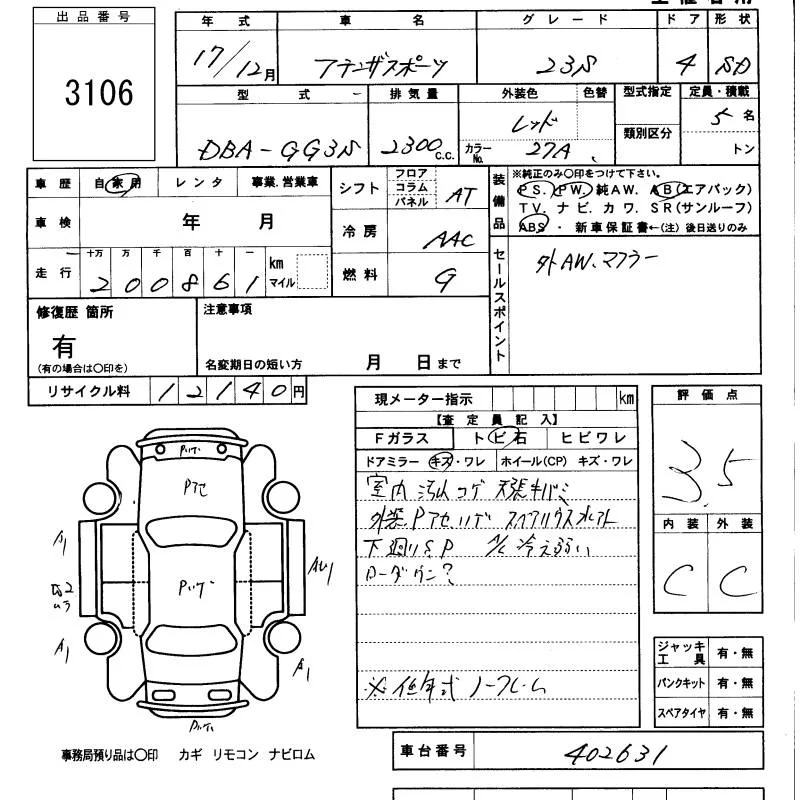 出品番号
3106
年式 車名 グレード ドア 形状
17/12月 アテンザスポーツ 23S 4 SD
型式 排気量 外装色 色替 型式指定 定員・積載
DBA-GG3S 2300c.c. レッド カラーNo. 27A 類別区分 5名 トン
車歴 自家用 レンタ 事業.営業車
シフト フロア コラム パネル AT
車検 年 月
冷房 AAC
走行 十万 万 千 百 十 一
200861 km マイル
燃料 G
装備品 ※純正のみ〇印をつけて下さい。
PS. PW. 純AW. AB(エアバック)
TV. ナビ. カワ. SR(サンルーフ)
ABS・ 新車保証書←(注) 後日送りのみ
セールスポイント
外AW.マフラー
修復歴 箇所
有
(有の場合は〇印を)
注意事項
名変期日の短い方 月 日まで
リサイクル料 12140円
現メーター指示 km
【査定員記入】
Fガラス トビ石 ヒビワレ
ドアミラー キズ・ワレ ホイール(CP) キズ・ワレ
室内 汚れ コゲ 天張キバミ
外装Pアセ.ハゲ
下廻りSP A/C冷え弱い
ローダウン?
※低年式 ノークレーム
評価点
3.5
内装 外装
C C
ジャッキ工具 有・無
パンクキット 有・無
スペアタイヤ 有・無
車台番号 402631
Pハゲ
Pアセ
A1
Pハゲ
AU1
A1
A1
Pハゲ
事務局預り品は〇印 カギ リモコン ナビロム